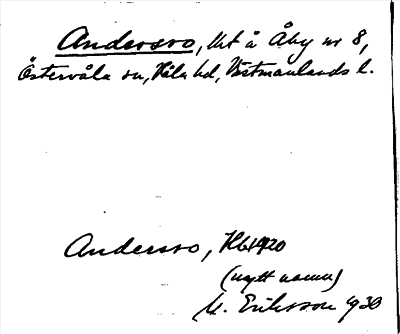 Andersvo, lht å Åby nr 8,
Östervåla sn, Våla hd, Västmanlands l.
Andersvo, Hb 1920
(nytt namn)
M. Eriksson 1930